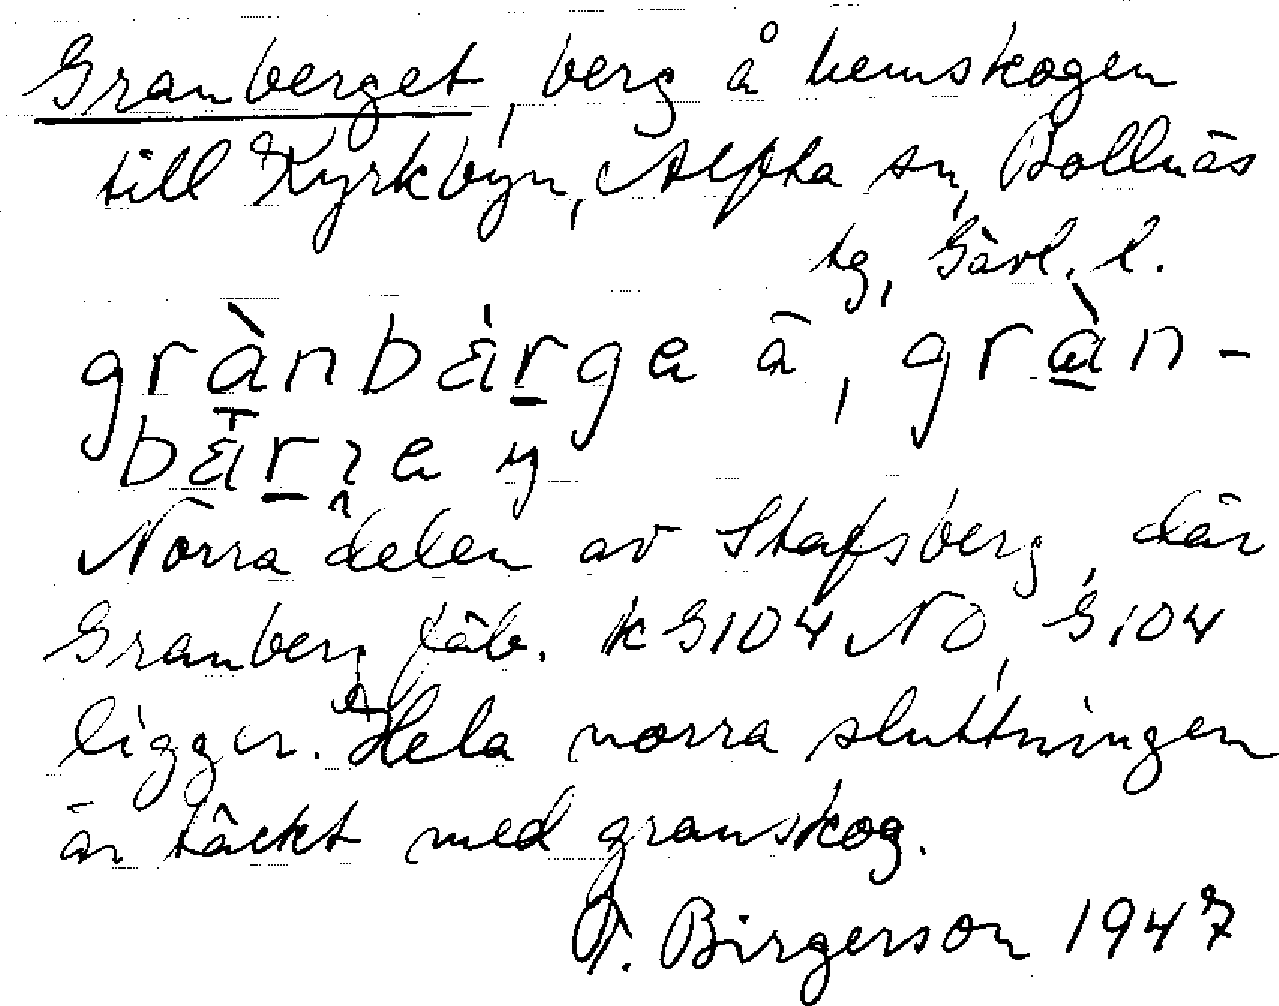 Granberget, berg å hemskogen
till Kyrkbyn, Alfta sn, Bollnäs
tg, Gävl. l.
grànbárge ä, gràn-
Norra delen av Stafsberg, där
Granberg fäb. k G104 NO, G104
ligger. Hela norra sluttningen
är täckt med granskog.
T. Birgerson 1947